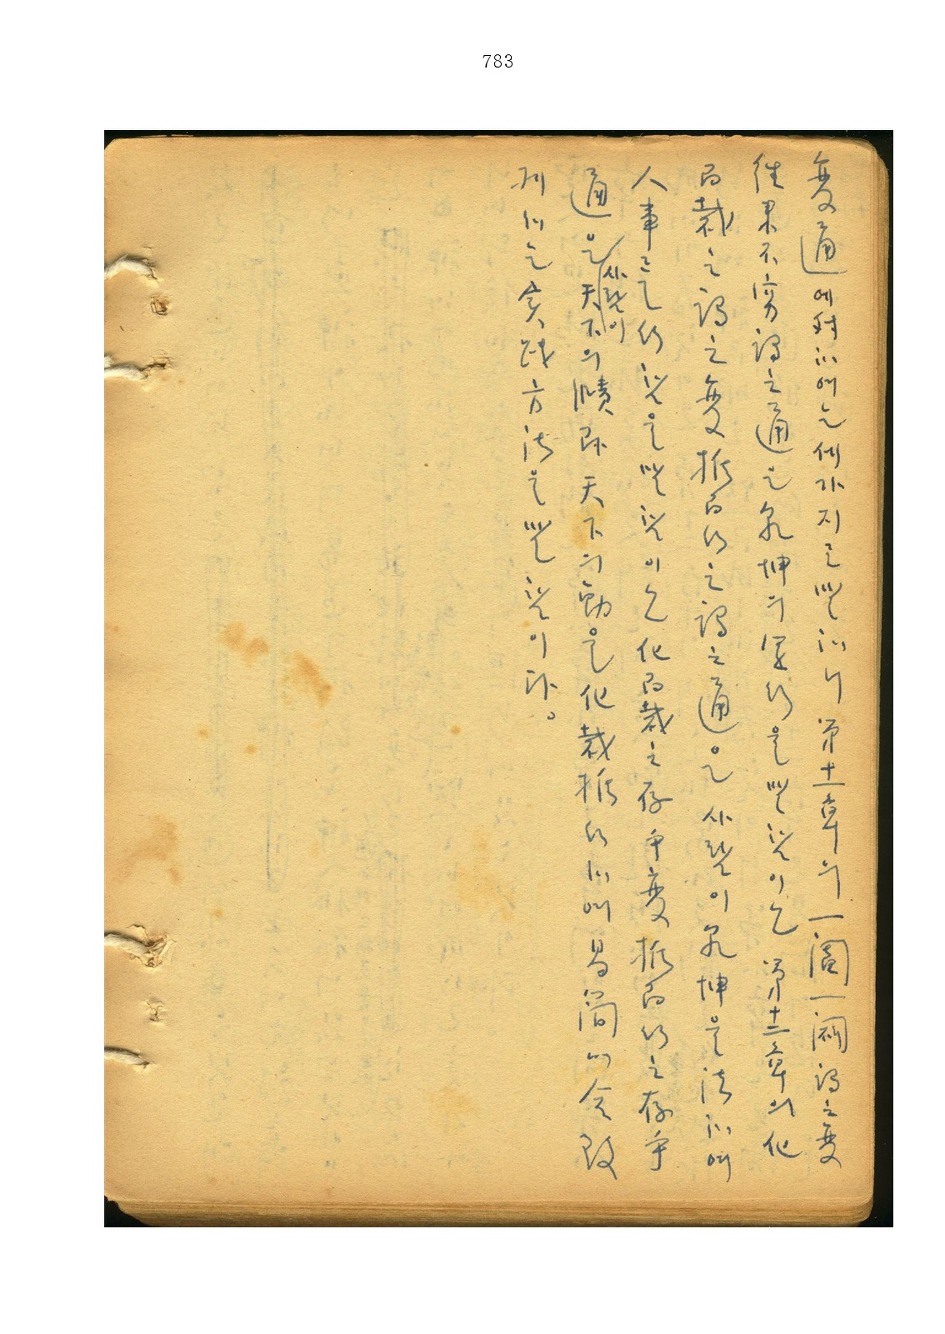 783
變通에對하여는세가지로말하니第十一章의一闔一闢謂之變
往來不窮謂之通은乾坤의運行을말함이오第十二章의化
而裁之謂之變推而行之謂之通은사람이乾坤을法하여
人事로行함을말함이오化而裁之存乎變推而行之存乎
通은사람이天下의賾과天下의動을化裁推行하여易簡에合致
케하는實踐方法을말함이라。